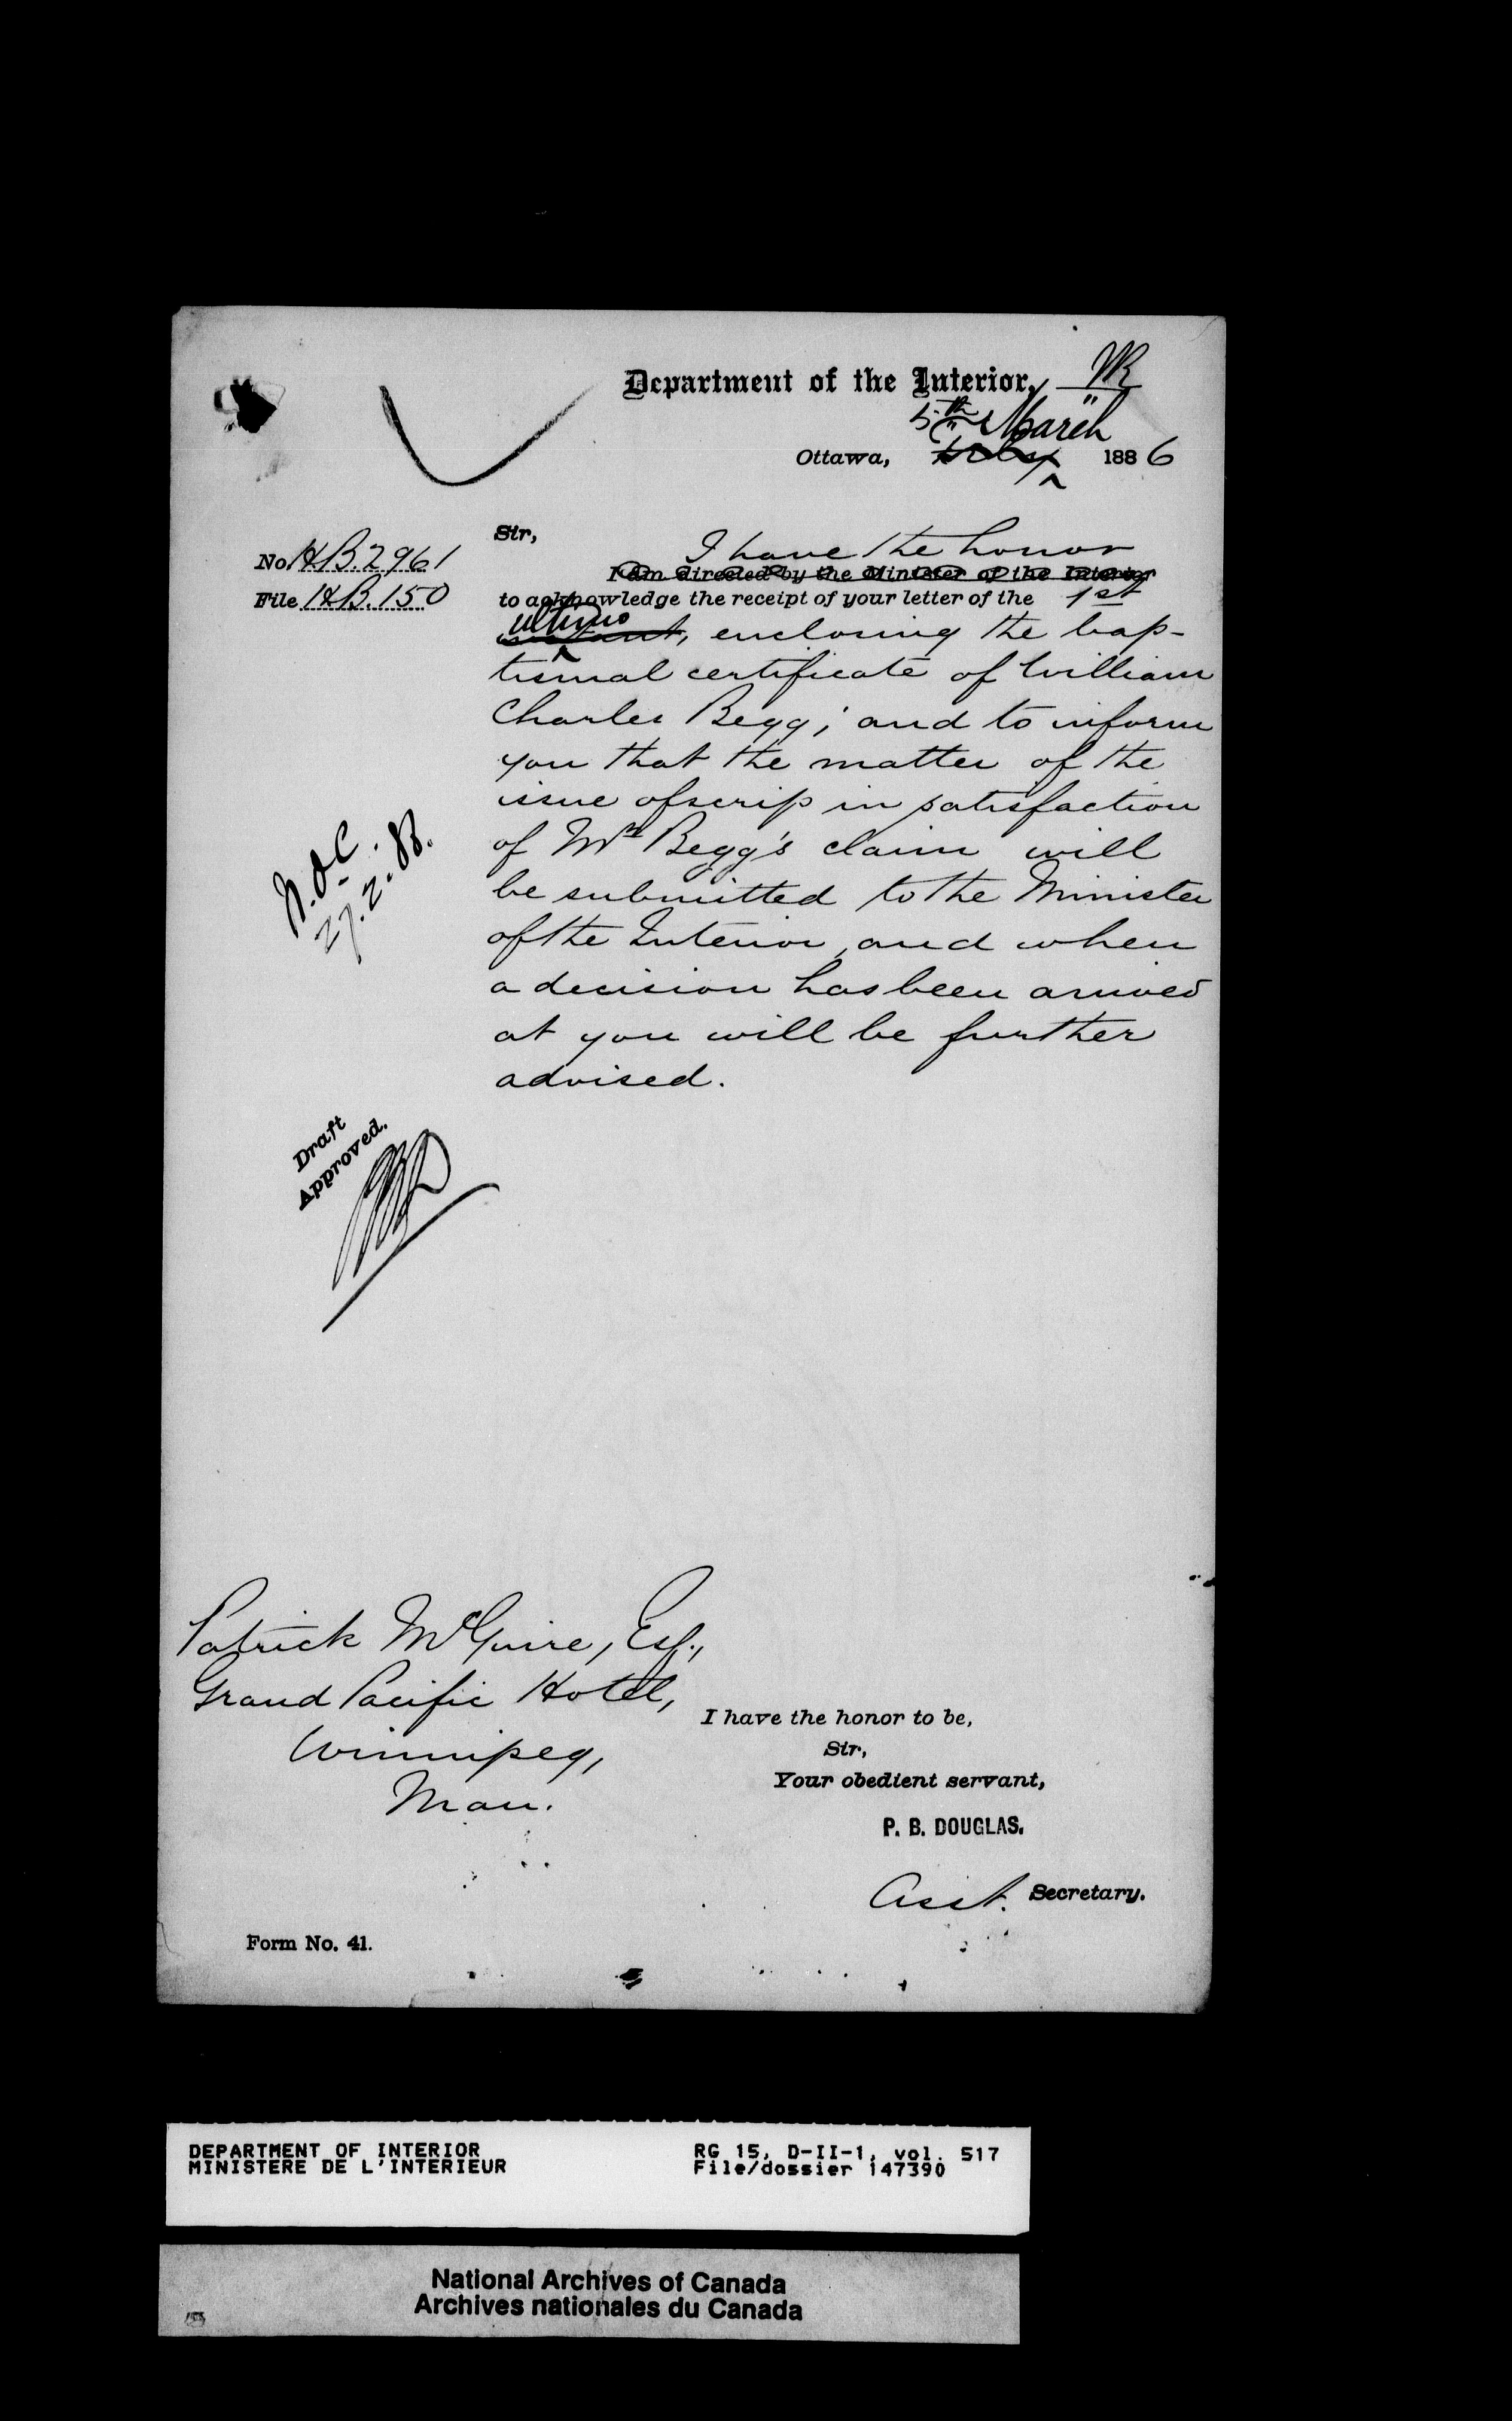 Department of the Interior,
5th March
Ottawa, 1886
Sir,
No HB 2961
File HB. 150
I have the honor
I am directed by the Minister of the Interior
to acknowledge the receipt of your letter of the 1st
ultimo
instant, enclosing the bap-
tismal certificate of William
Charles Begg; and to inform
you that the matter of the
issue of scrip in satisfaction
of Mr Begg's claim will
be submitted to the Minister
of the Interior, and when
a decision has been arrived
at you will be further
advised.
27.2.
Draft
Approved.
Patrick McGuire, Esq.,
Grand Pacific Hotel,
Winnipeg,
Man.
I have the honor to be,
Sir,
Your obedient servant,
P. B. DOUGLAS.
Asst. Secretary.
Form No. 41.
DEPARTMENT OF INTERIOR RG 15, D-II-1, vol. 517
MINISTERE DE L'INTERIEUR File/dossier 147390
National Archives of Canada
Archives nationales du Canada